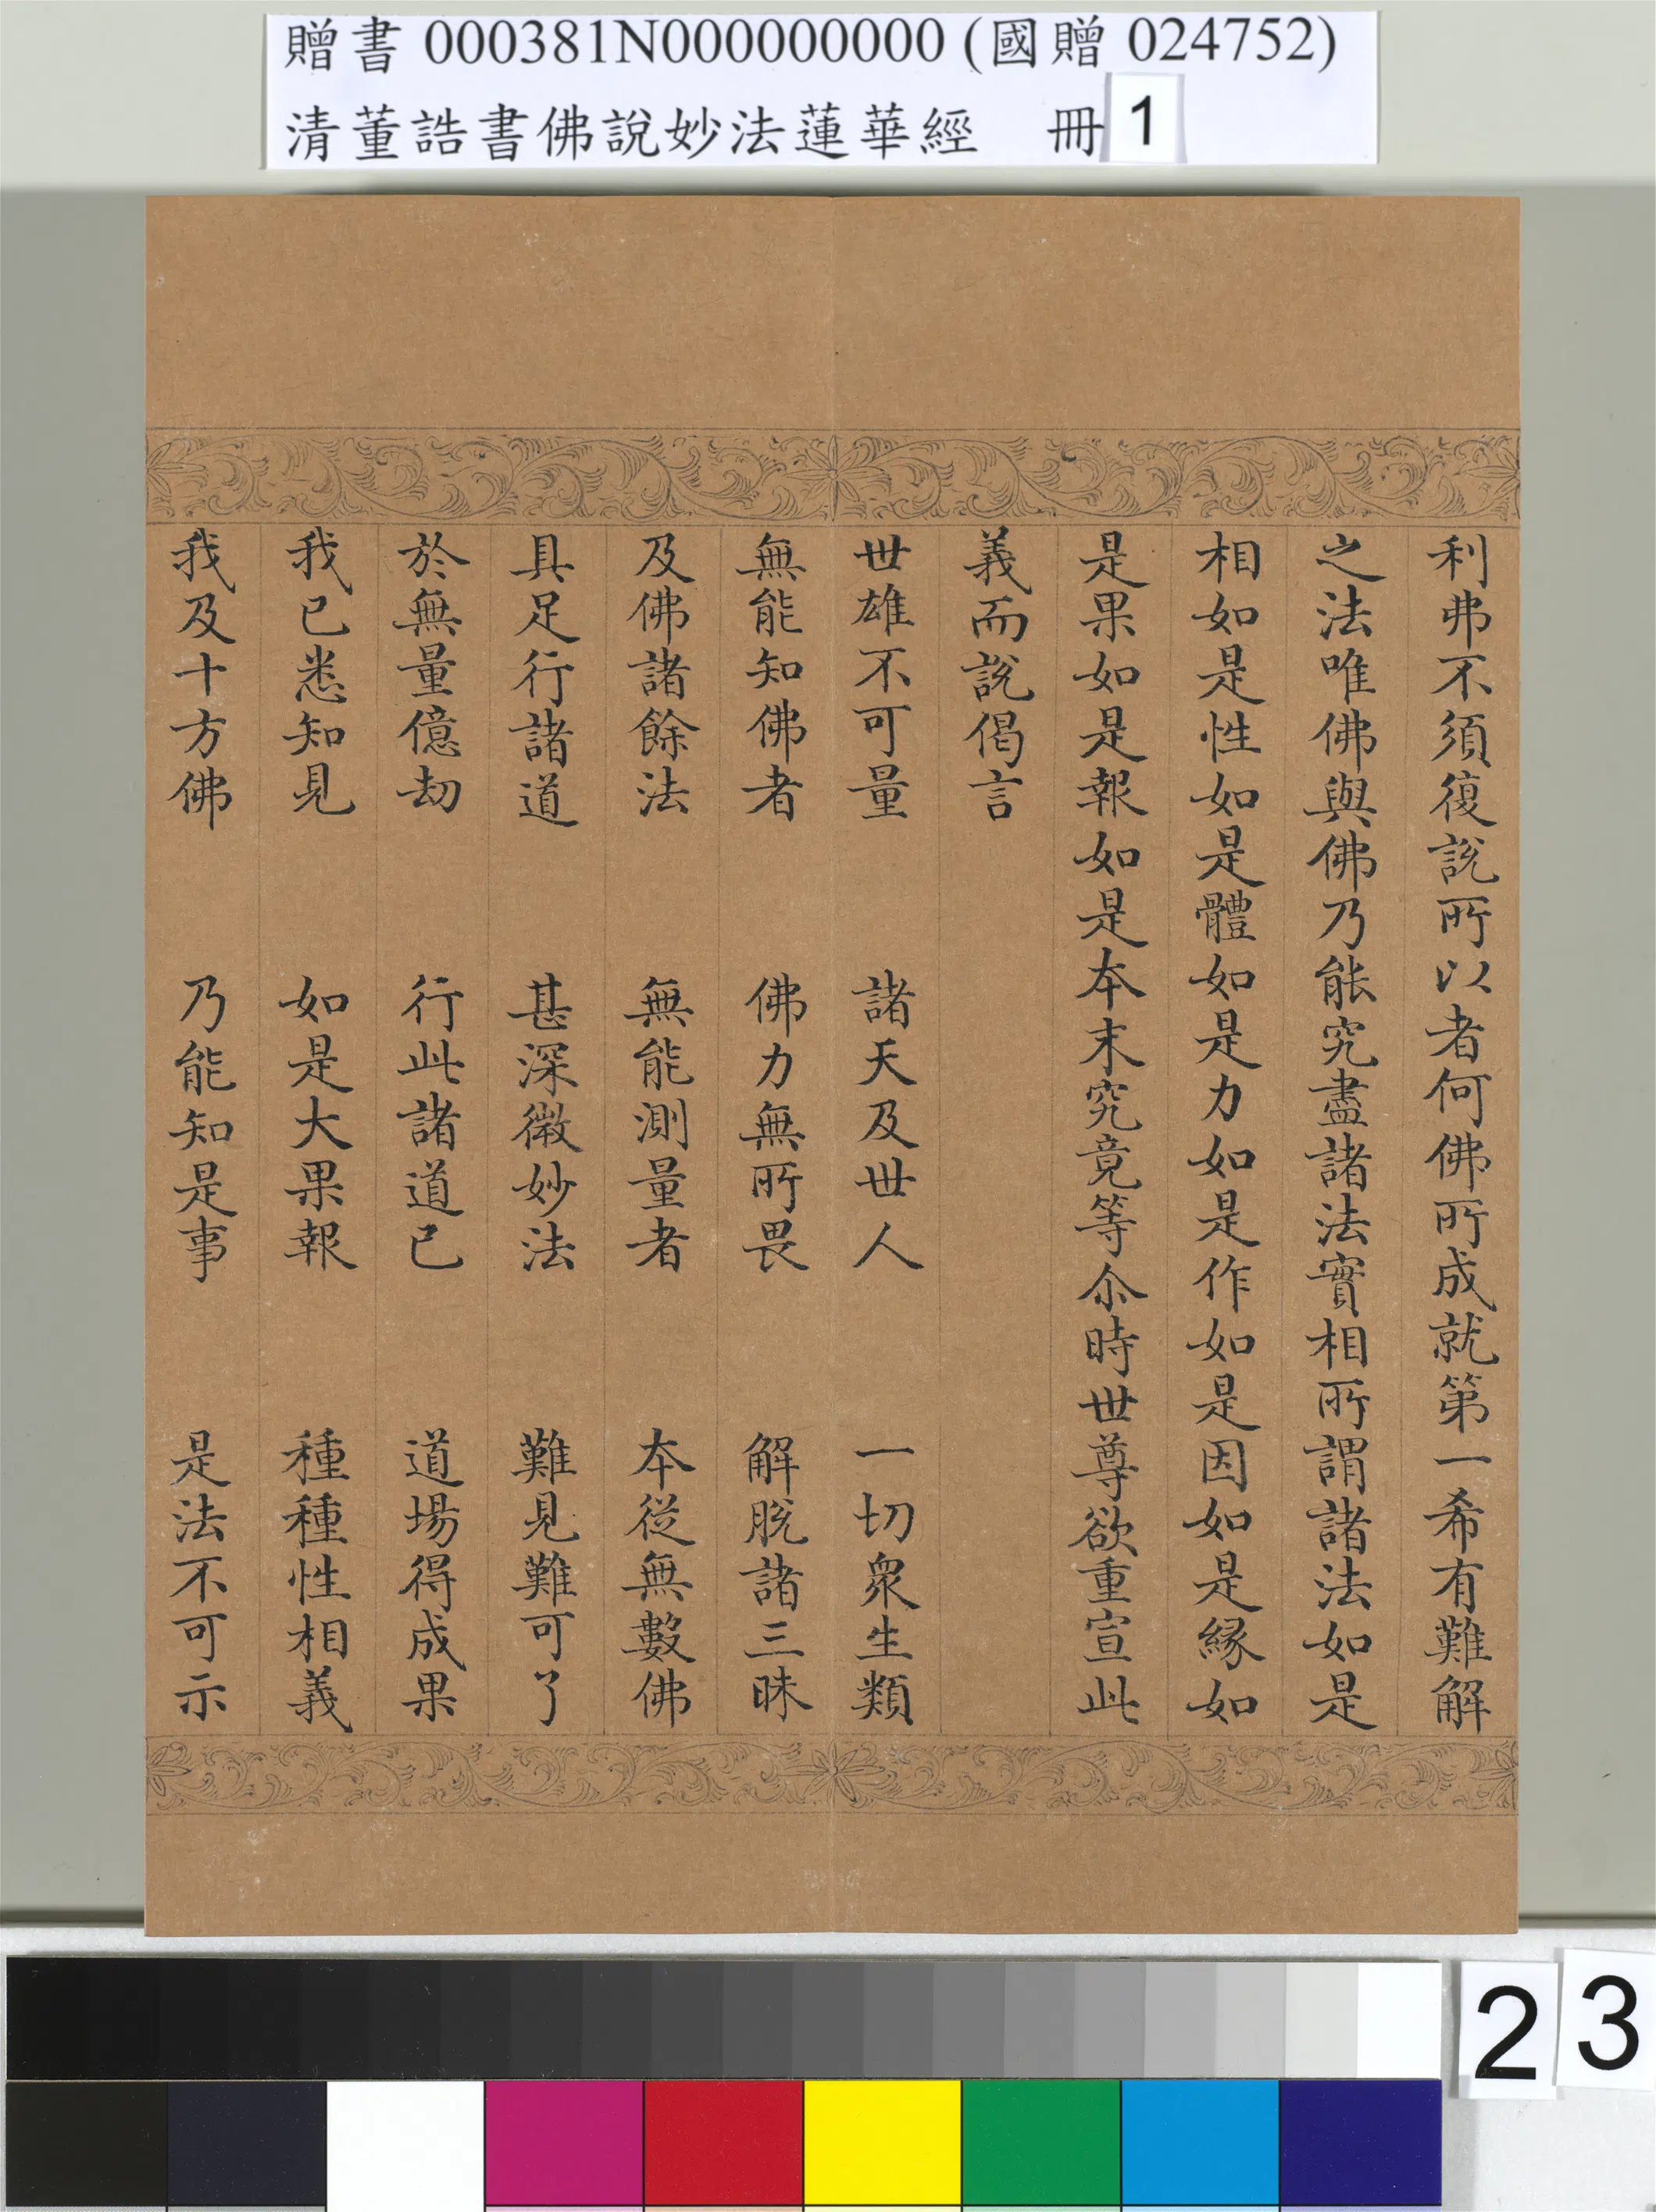 贈書 000381N000000000 (國贈 024752)
清董誥書佛說妙法蓮華經 冊 1
利弗不須復說所以者何佛所成就第一希有難解
之法唯佛與佛乃能究盡諸法實相所謂諸法如是
相如是性如是體如是力如是作如是因如是緣如
是果如是報如是本末究竟等尒時世尊欲重宣此
義而說偈言
世雄不可量 諸天及世人 一切眾生類
無能知佛者 佛力無所畏 解脫諸三昧
及佛諸餘法 無能測量者 本從無數佛
具足行諸道 甚深微妙法 難見難可了
於無量億劫 行此諸道已 道場得成果
我已悉知見 如是大果報 種種性相義
我及十方佛 乃能知是事 是法不可示
23